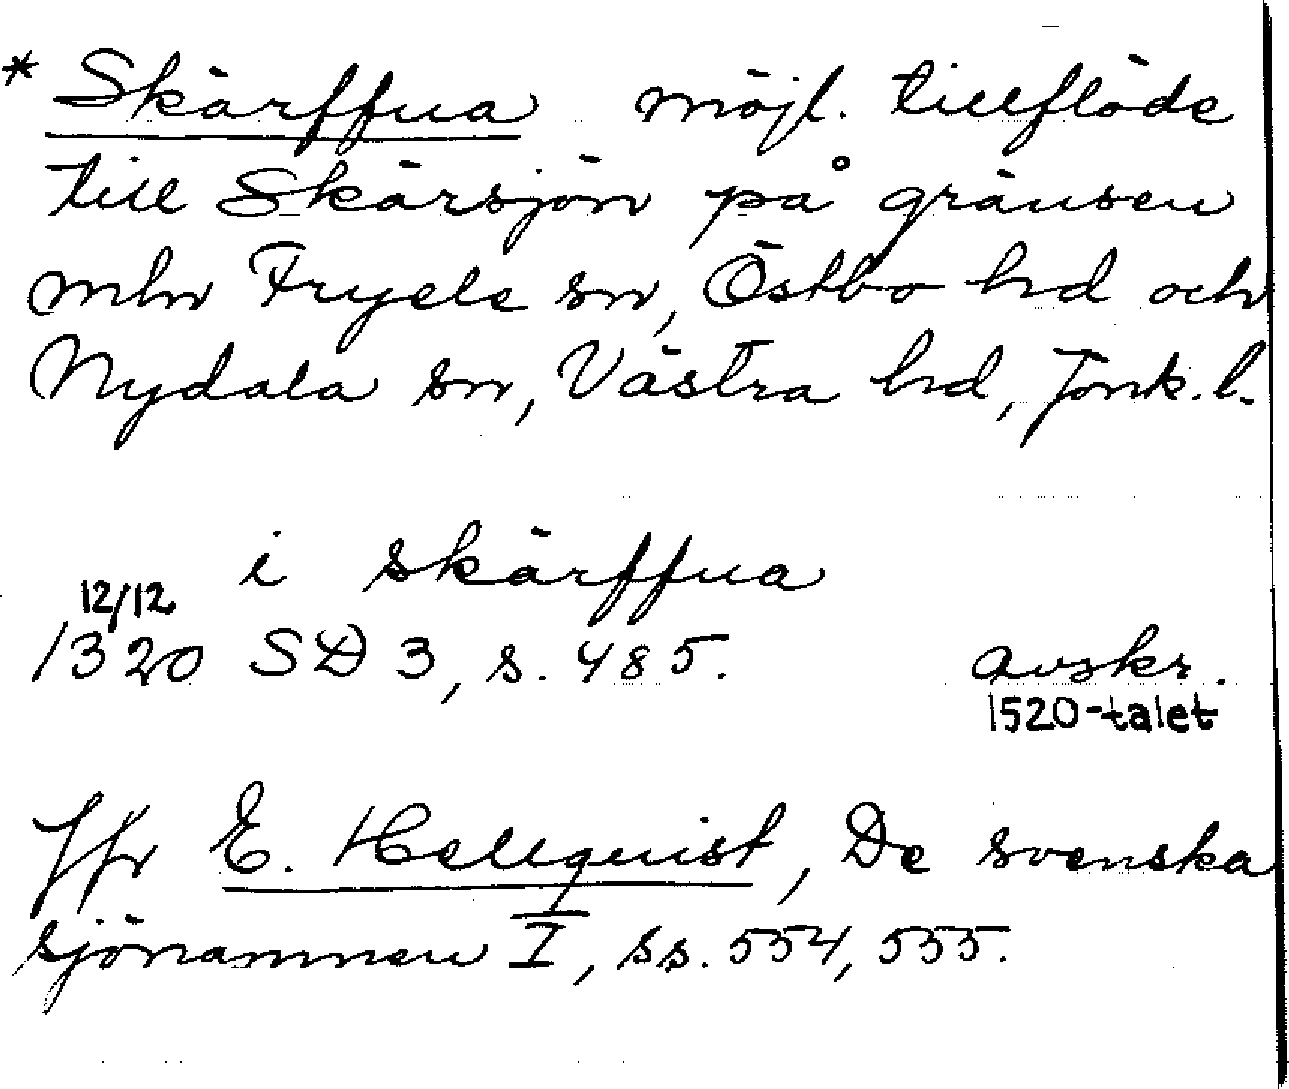 * Skärffua möjl. tillflöde
till Skärsjön på gränsen
mln Fryele sn, Östbo hd och
Nydala sn, Västra hd, Jönk.l.
i skärffua
12/12
1320 SD 3, s. 485. avskr.
1520-talet
Jfr E. Hellquist, De svenska
sjönamnen I, ss. 554, 555.